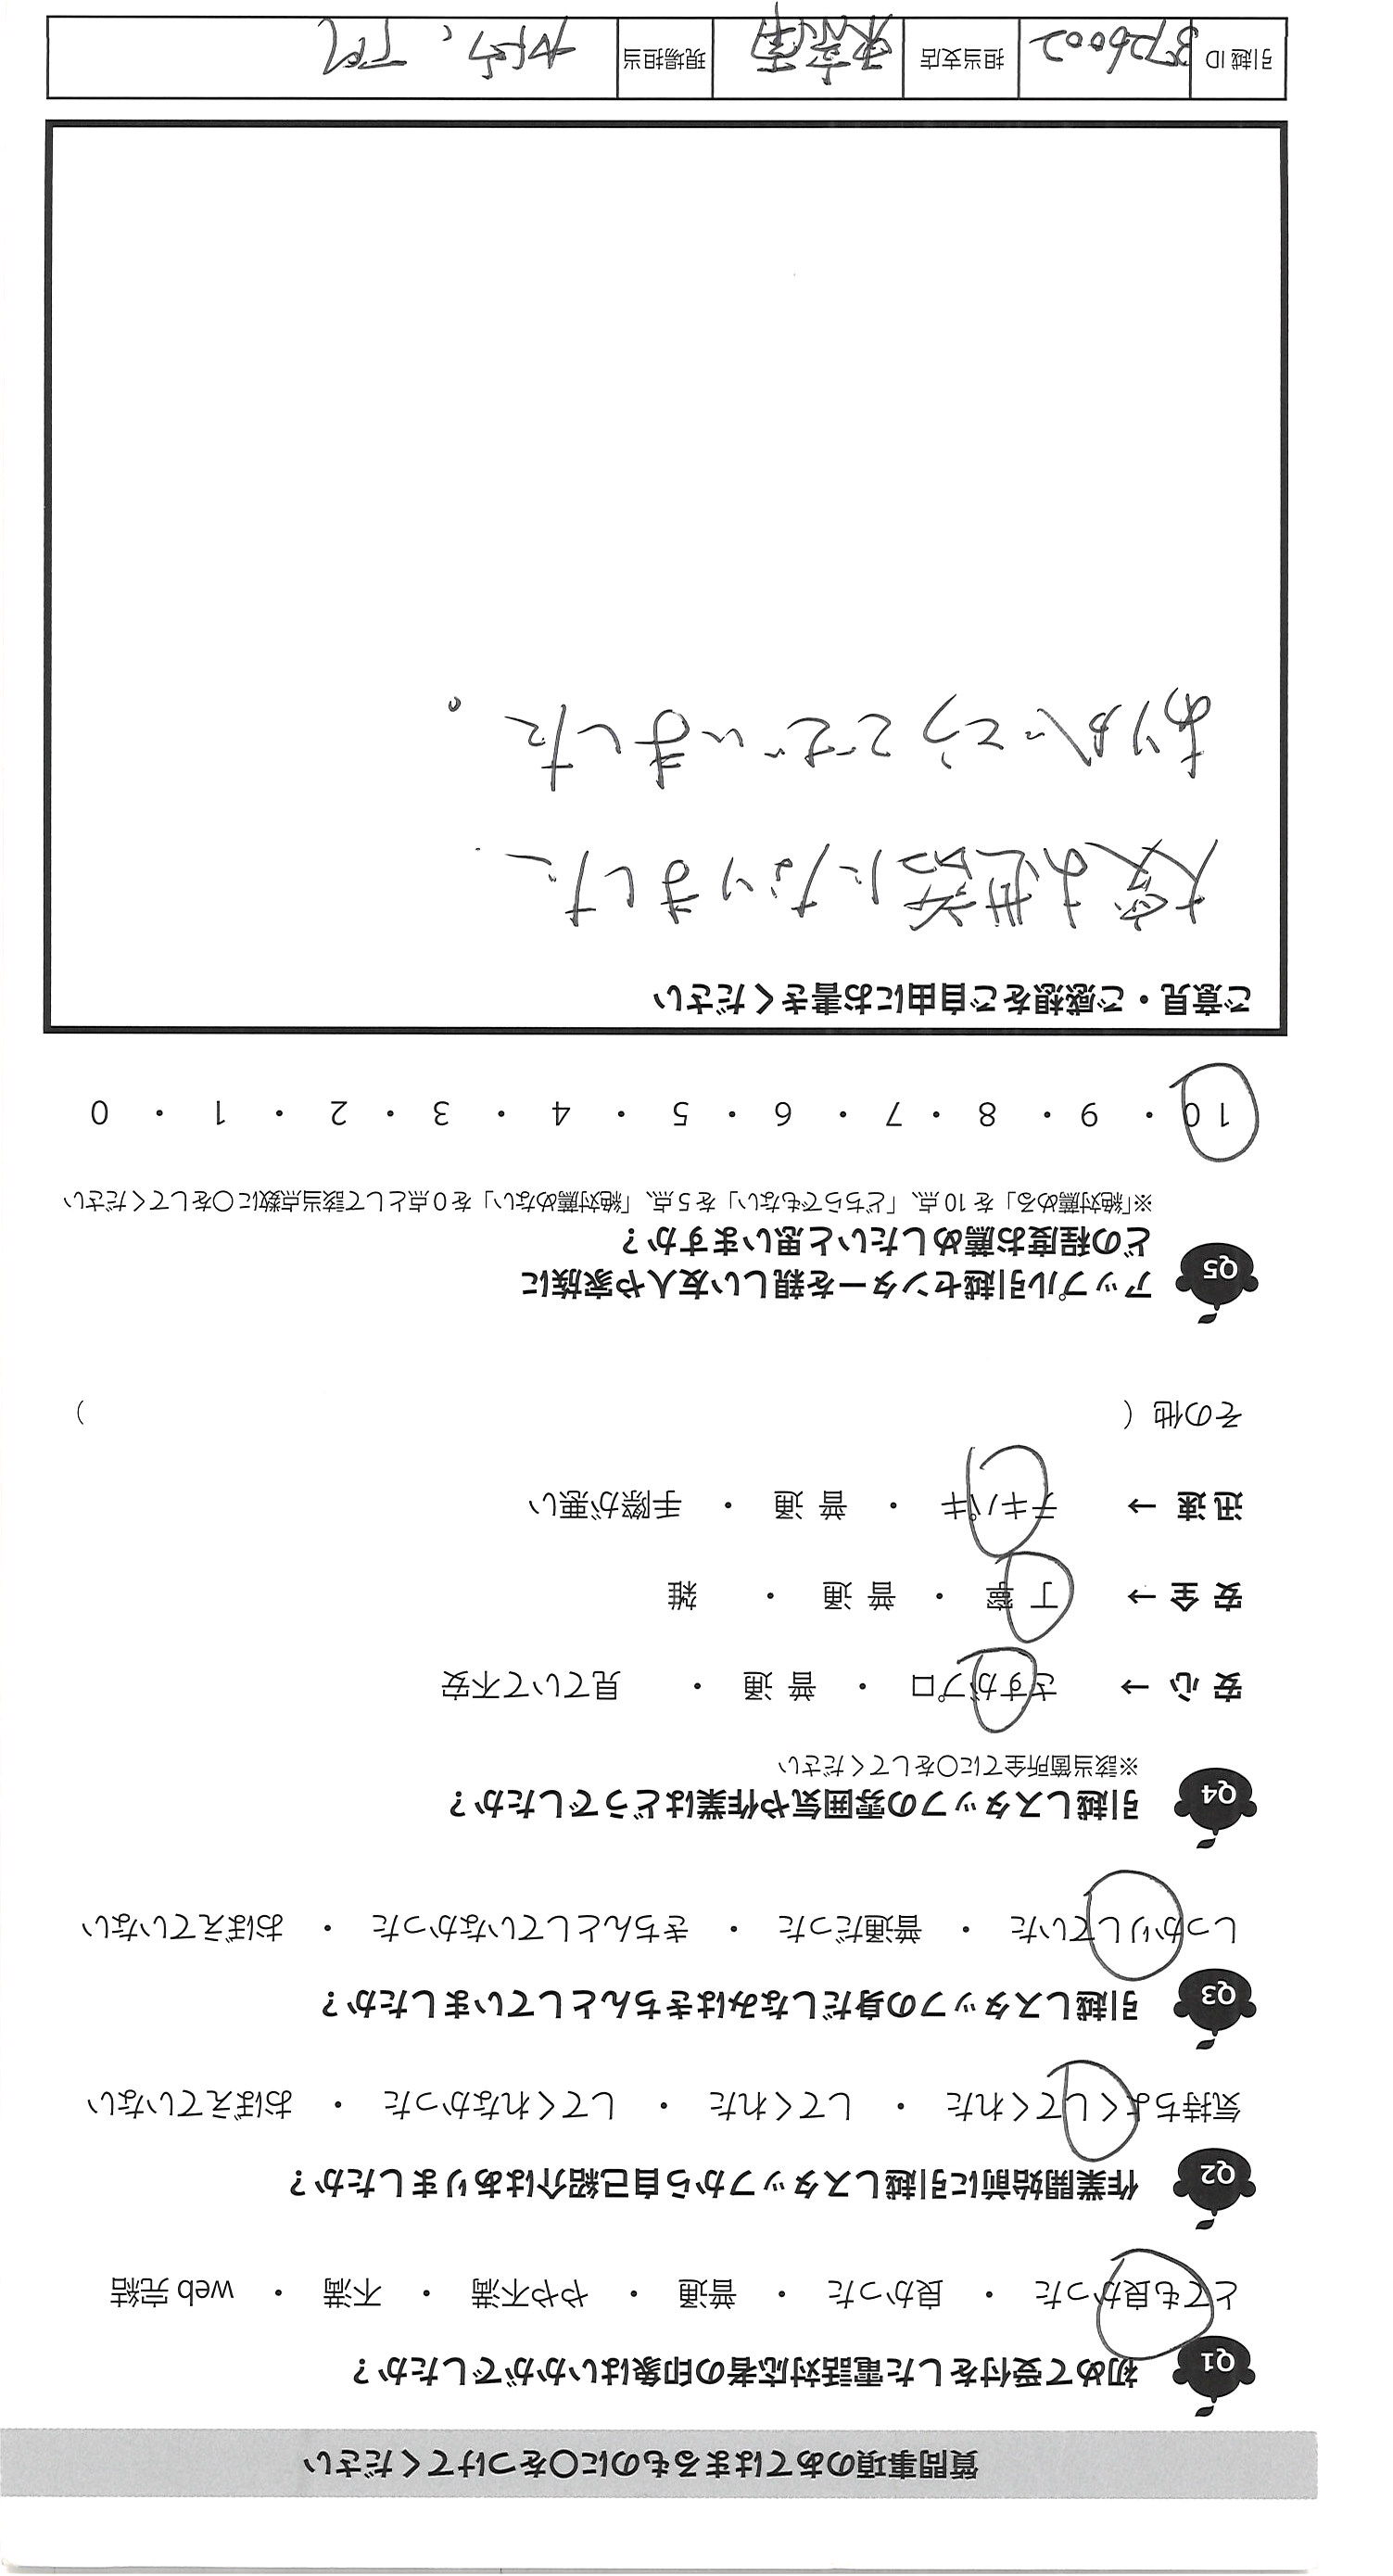 質問事項のあてはまるものに〇をつけてください
Q1 初めて受付をした電話対応者の印象はいかがでしたか？
とても良かった ・ 良かった ・ 普通 ・ やや不満 ・ 不満 ・ web 完結
Q2 作業開始前に引越しスタッフから自己紹介はありましたか？
気持ちよくしてくれた ・ してくれた ・ してくれなかった ・ おぼえていない
Q3 引越しスタッフの身だしなみはきちんとしていましたか？
しっかりしていた ・ 普通だった ・ きちんとしていなかった ・ おぼえていない
Q4 引越しスタッフの雰囲気や作業はどうでしたか？
※該当箇所全てに〇をしてください
安 心 → さすがプロ ・ 普 通 ・ 見ていて不安
安 全 → 丁 寧 ・ 普 通 ・ 雑
迅 速 → テキパキ ・ 普 通 ・ 手際が悪い
その他（ ）
Q5 アップル引越センターを親しい友人や家族に
どの程度お薦めしたいと思いますか？
※「絶対薦める」を 10 点、「どちらでもない」を 5 点、「絶対薦めない」を 0 点として該当点数に〇をしてください
10 ・ 9 ・ 8 ・ 7 ・ 6 ・ 5 ・ 4 ・ 3 ・ 2 ・ 1 ・ 0
ご意見・ご感想をご自由にお書きください
大変お世話になりました
ありがとうございました。
引越 ID 担当支店 東京南 現場担当